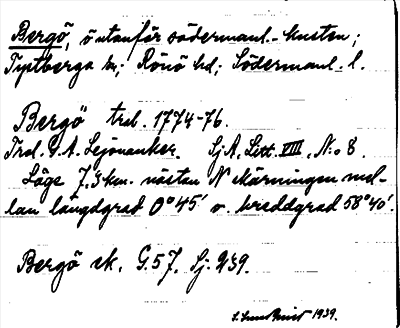 Bergö, ö utanför södermanl. kusten;
Tystberga sn; Rönö hd; Södermanl. l.
Bergö trol. 1774-76.
Trol. G. A. Lejonanker. Sj A. Litt. VIII. N:o 8.
Läge 7,5 km. nästan N skärningen mel-
lan längdgrad 0°45' o. breddgrad 58°40'.
Bergö ek. G.57. Sj: 939.
1939.